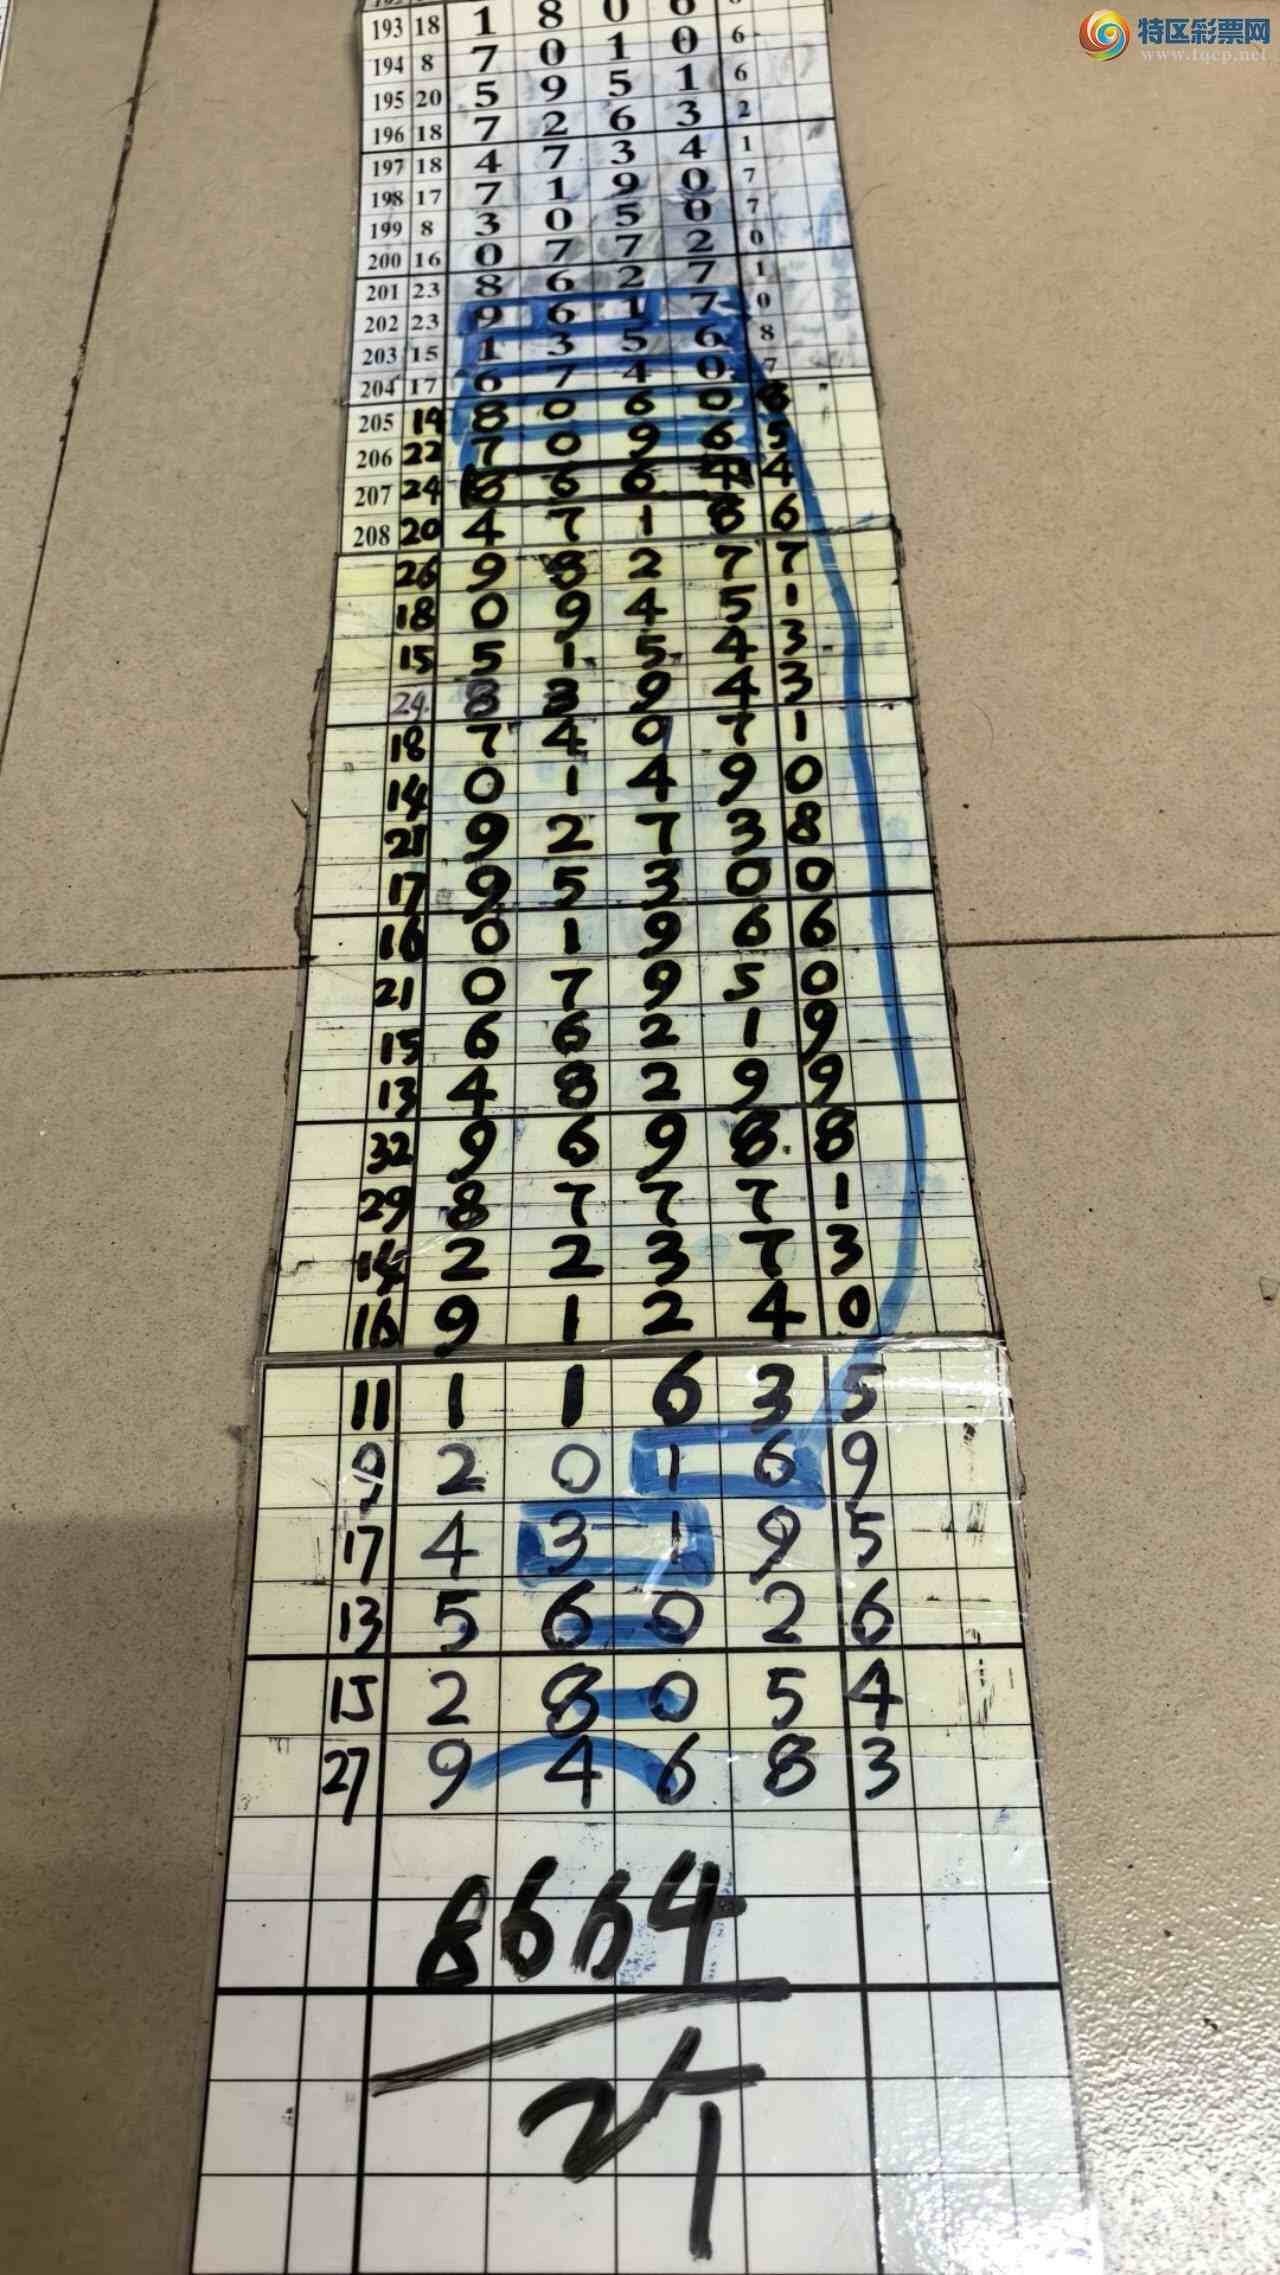 特区彩票网
www.tqcp.net
193 18 1 8 0 6
194 8 7 0 1 0 6
195 20 5 9 5 1 6
196 18 7 2 6 3 2
197 18 4 7 3 4 1
198 17 7 1 9 0 7
199 8 3 0 5 0 7
200 16 0 7 7 2 0
201 23 8 6 2 7 1
202 23 9 6 1 7 0
203 15 1 3 5 6 8
204 17 6 7 4 0 7
205 14 8 0 6 0 8
206 22 7 0 9 6 5
207 24 8 6 6 4 4
208 20 4 7 1 8 6
26 9 8 2 7 7
18 0 9 4 5 1
15 5 1 5 4 3
24 8 3 9 4 3
18 7 4 0 7 1
14 0 1 4 9 0
21 9 2 7 3 8
17 9 5 3 0 0
16 0 1 9 6 6
21 0 7 9 5 0
15 6 6 2 1 9
13 4 8 2 9 9
32 9 6 9 8 8
29 8 7 7 7 1
14 2 2 3 7 3
16 9 1 2 4 0
11 1 1 6 3 5
9 2 0 1 6 9
17 4 3 1 9 5
13 5 6 0 2 6
15 2 8 0 5 4
27 9 4 6 8 3
8664